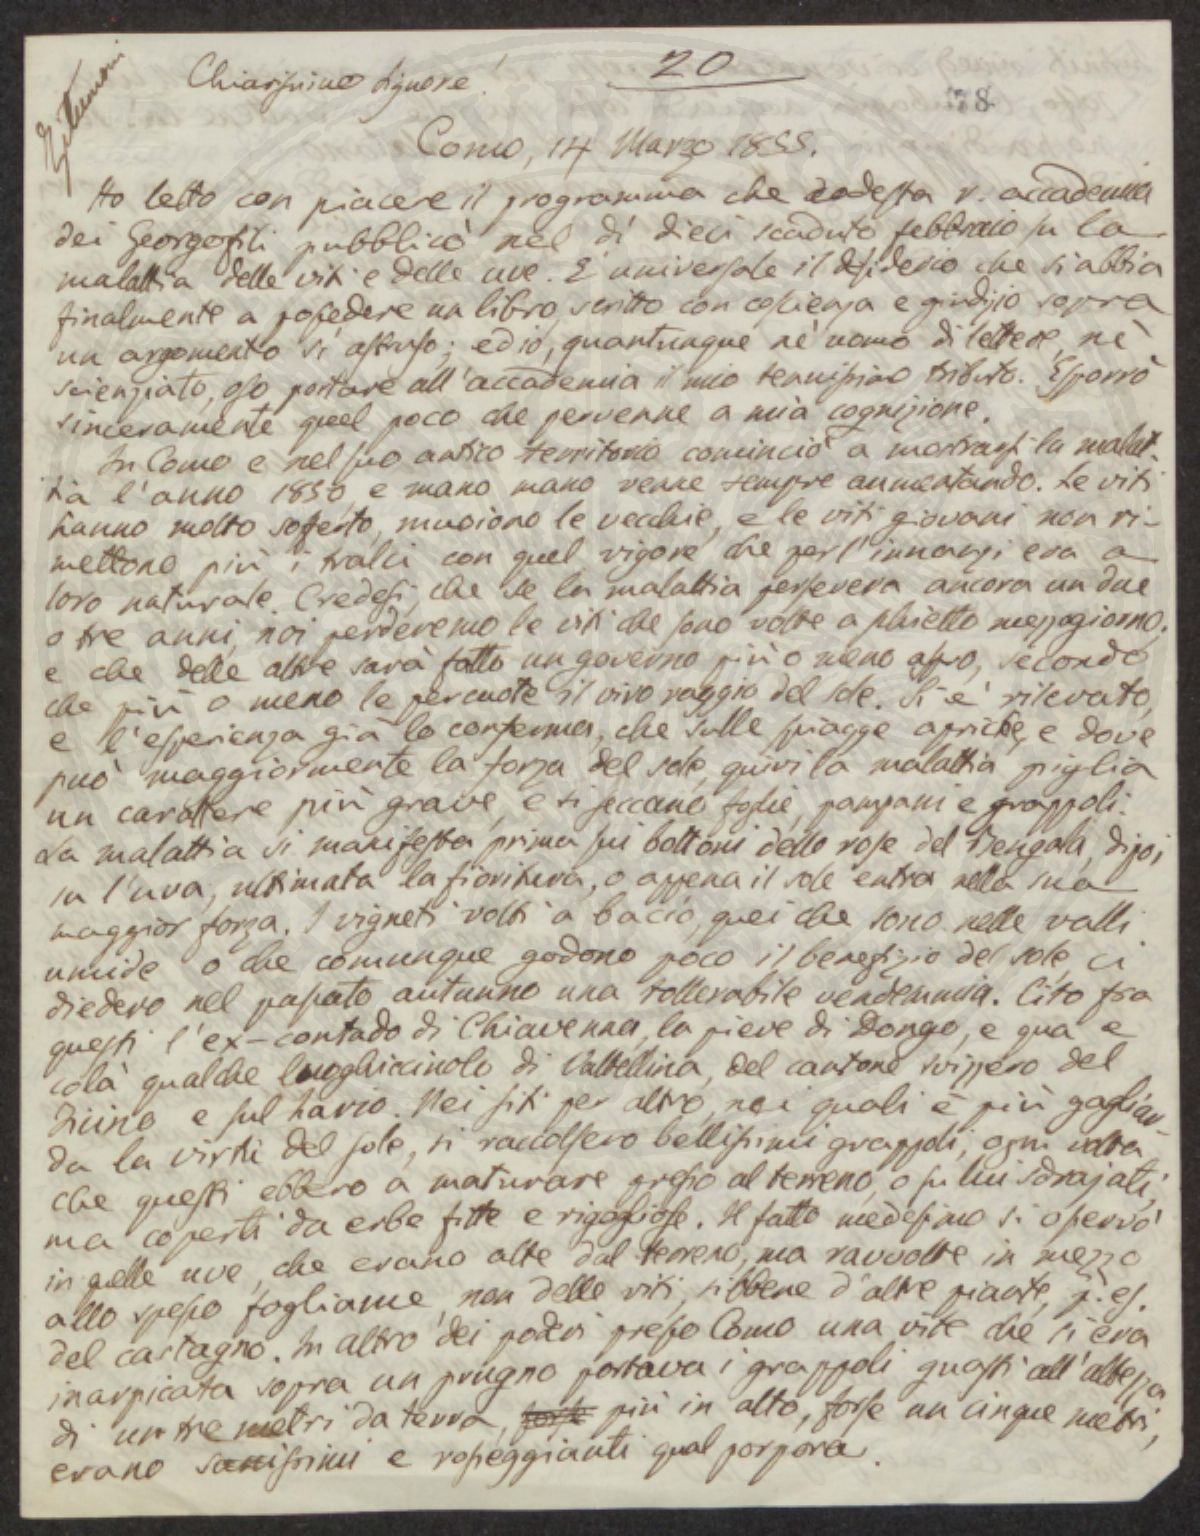 Chiarissimo Signore!
20
78
Como, 14 Marzo 1855.
Ho letto con piacere il programma che codesta r. accademia
dei Georgofili pubblicò nel dì dieci scaduto febbraio su la
malattia delle viti e delle uve. È universale il desiderio che si abbia
finalmente a possedere un libro, scritto con coscienza e giudizio sopra
un argomento sì astruso; ed io, quantunque nè uomo di lettere, nè
scienziato, oso portare all'accademia il mio tenuissimo tributo. Esporrò
sinceramente quel poco che pervenne a mia cognizione.
In Como e nel suo antico territorio cominciò a mostrarsi la malat-
tia l'anno 1850, e mano mano venne sempre aumentando. Le viti
hanno molto sofferto, muoiono le vecchie, e le viti giovani non ri-
mettono più i tralci con quel vigore che per l'innanzi era a
loro naturale. Credesi, che se la malattia persevera ancora un due
o tre anni, noi perderemo le viti che sono volte a schietto mezzogiorno,
e che delle altre sarà fatto un governo più o meno aspro, secondo
che più o meno le percuote il vivo raggio del sole. Si è rilevato,
e l'esperienza già lo conferma, che sulle piagge apriche, e dove
può maggiormente la forza del sole, quivi la malattia piglia
un carattere più grave, e si seccano foglie, pampani e grappoli.
La malattia si manifesta prima sui bottoni delle rose del Bengala, dipoi
su l'uva, ultimata la fioritura, o appena il sole entra nella sua
maggior forza. I vigneti volti a bacìo, quei che sono nelle valli
umide o che comunque godono poco il benefizio del sole, ci
diedero nel passato autunno una tollerabile vendemmia. Cito fra
questi l'ex-contado di Chiavenna, la pieve di Dongo, e qua e
colà qualche luoghicciuolo di Valtellina, del cantone svizzero del
Ticino e sul Lario. Nei siti per altro, nei quali è più gagliar-
da la virtù del sole, si raccolsero bellissimi grappoli, ogni volta
che questi ebbero a maturare presso al terreno, o su lui sdrajati,
ma coperti da erbe fitte e rigogliose. Il fatto medesimo si osservò
in quelle uve, che erano alte dal terreno, ma ravvolte in mezzo
allo spesso fogliame, non delle viti, sibbene d'altre piante, p. es.
del castagno. In altro dei poderi presso Como una vite che si era
inarpicata sopra un prugno portava i grappoli guasti all'altezza
di un tre metri da terra, forse più in alto, forse un cinque metri,
erano sanissimi e rosseggianti qual porpora.